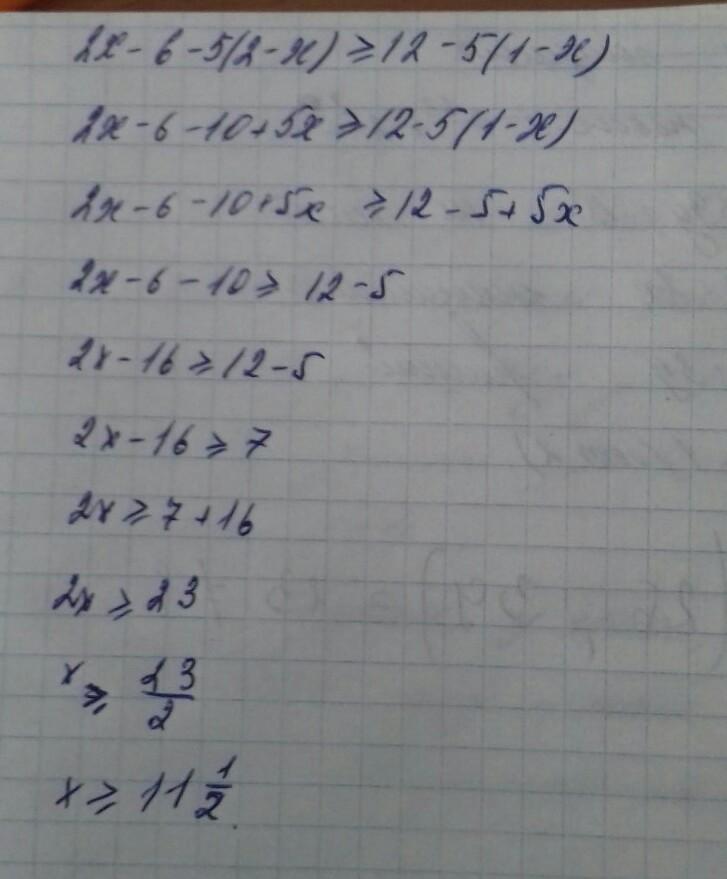 2x - 6 - 5(2 - x) ≥ 12 - 5(1 - x)
2x - 6 - 10 + 5x ≥ 12 - 5(1 - x)
2x - 6 - 10 + 5x ≥ 12 - 5 + 5x
2x - 6 - 10 ≥ 12 - 5
2x - 16 ≥ 12 - 5
2x - 16 ≥ 7
2x ≥ 7 + 16
2x ≥ 23
x ≥ 23/2
x ≥ 11 1/2